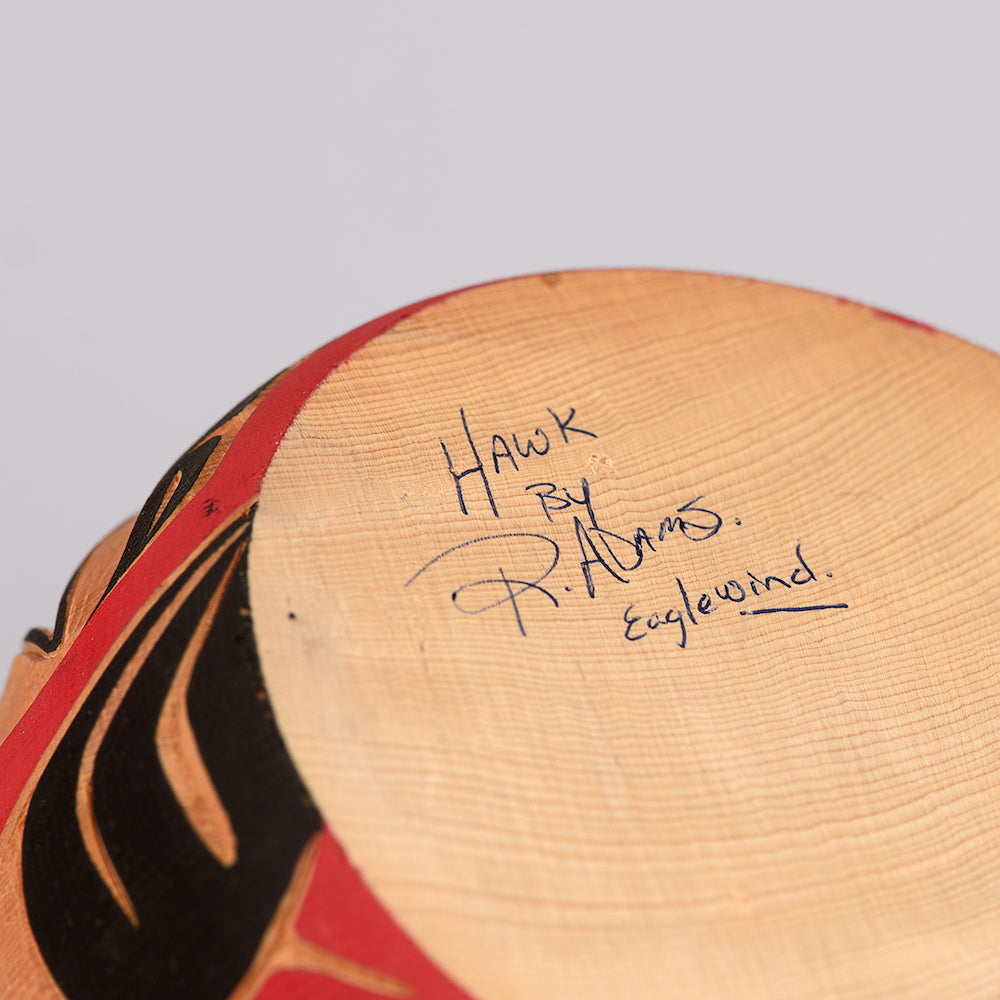 HAWK
BY
R. ADAMS.
Eaglewind.